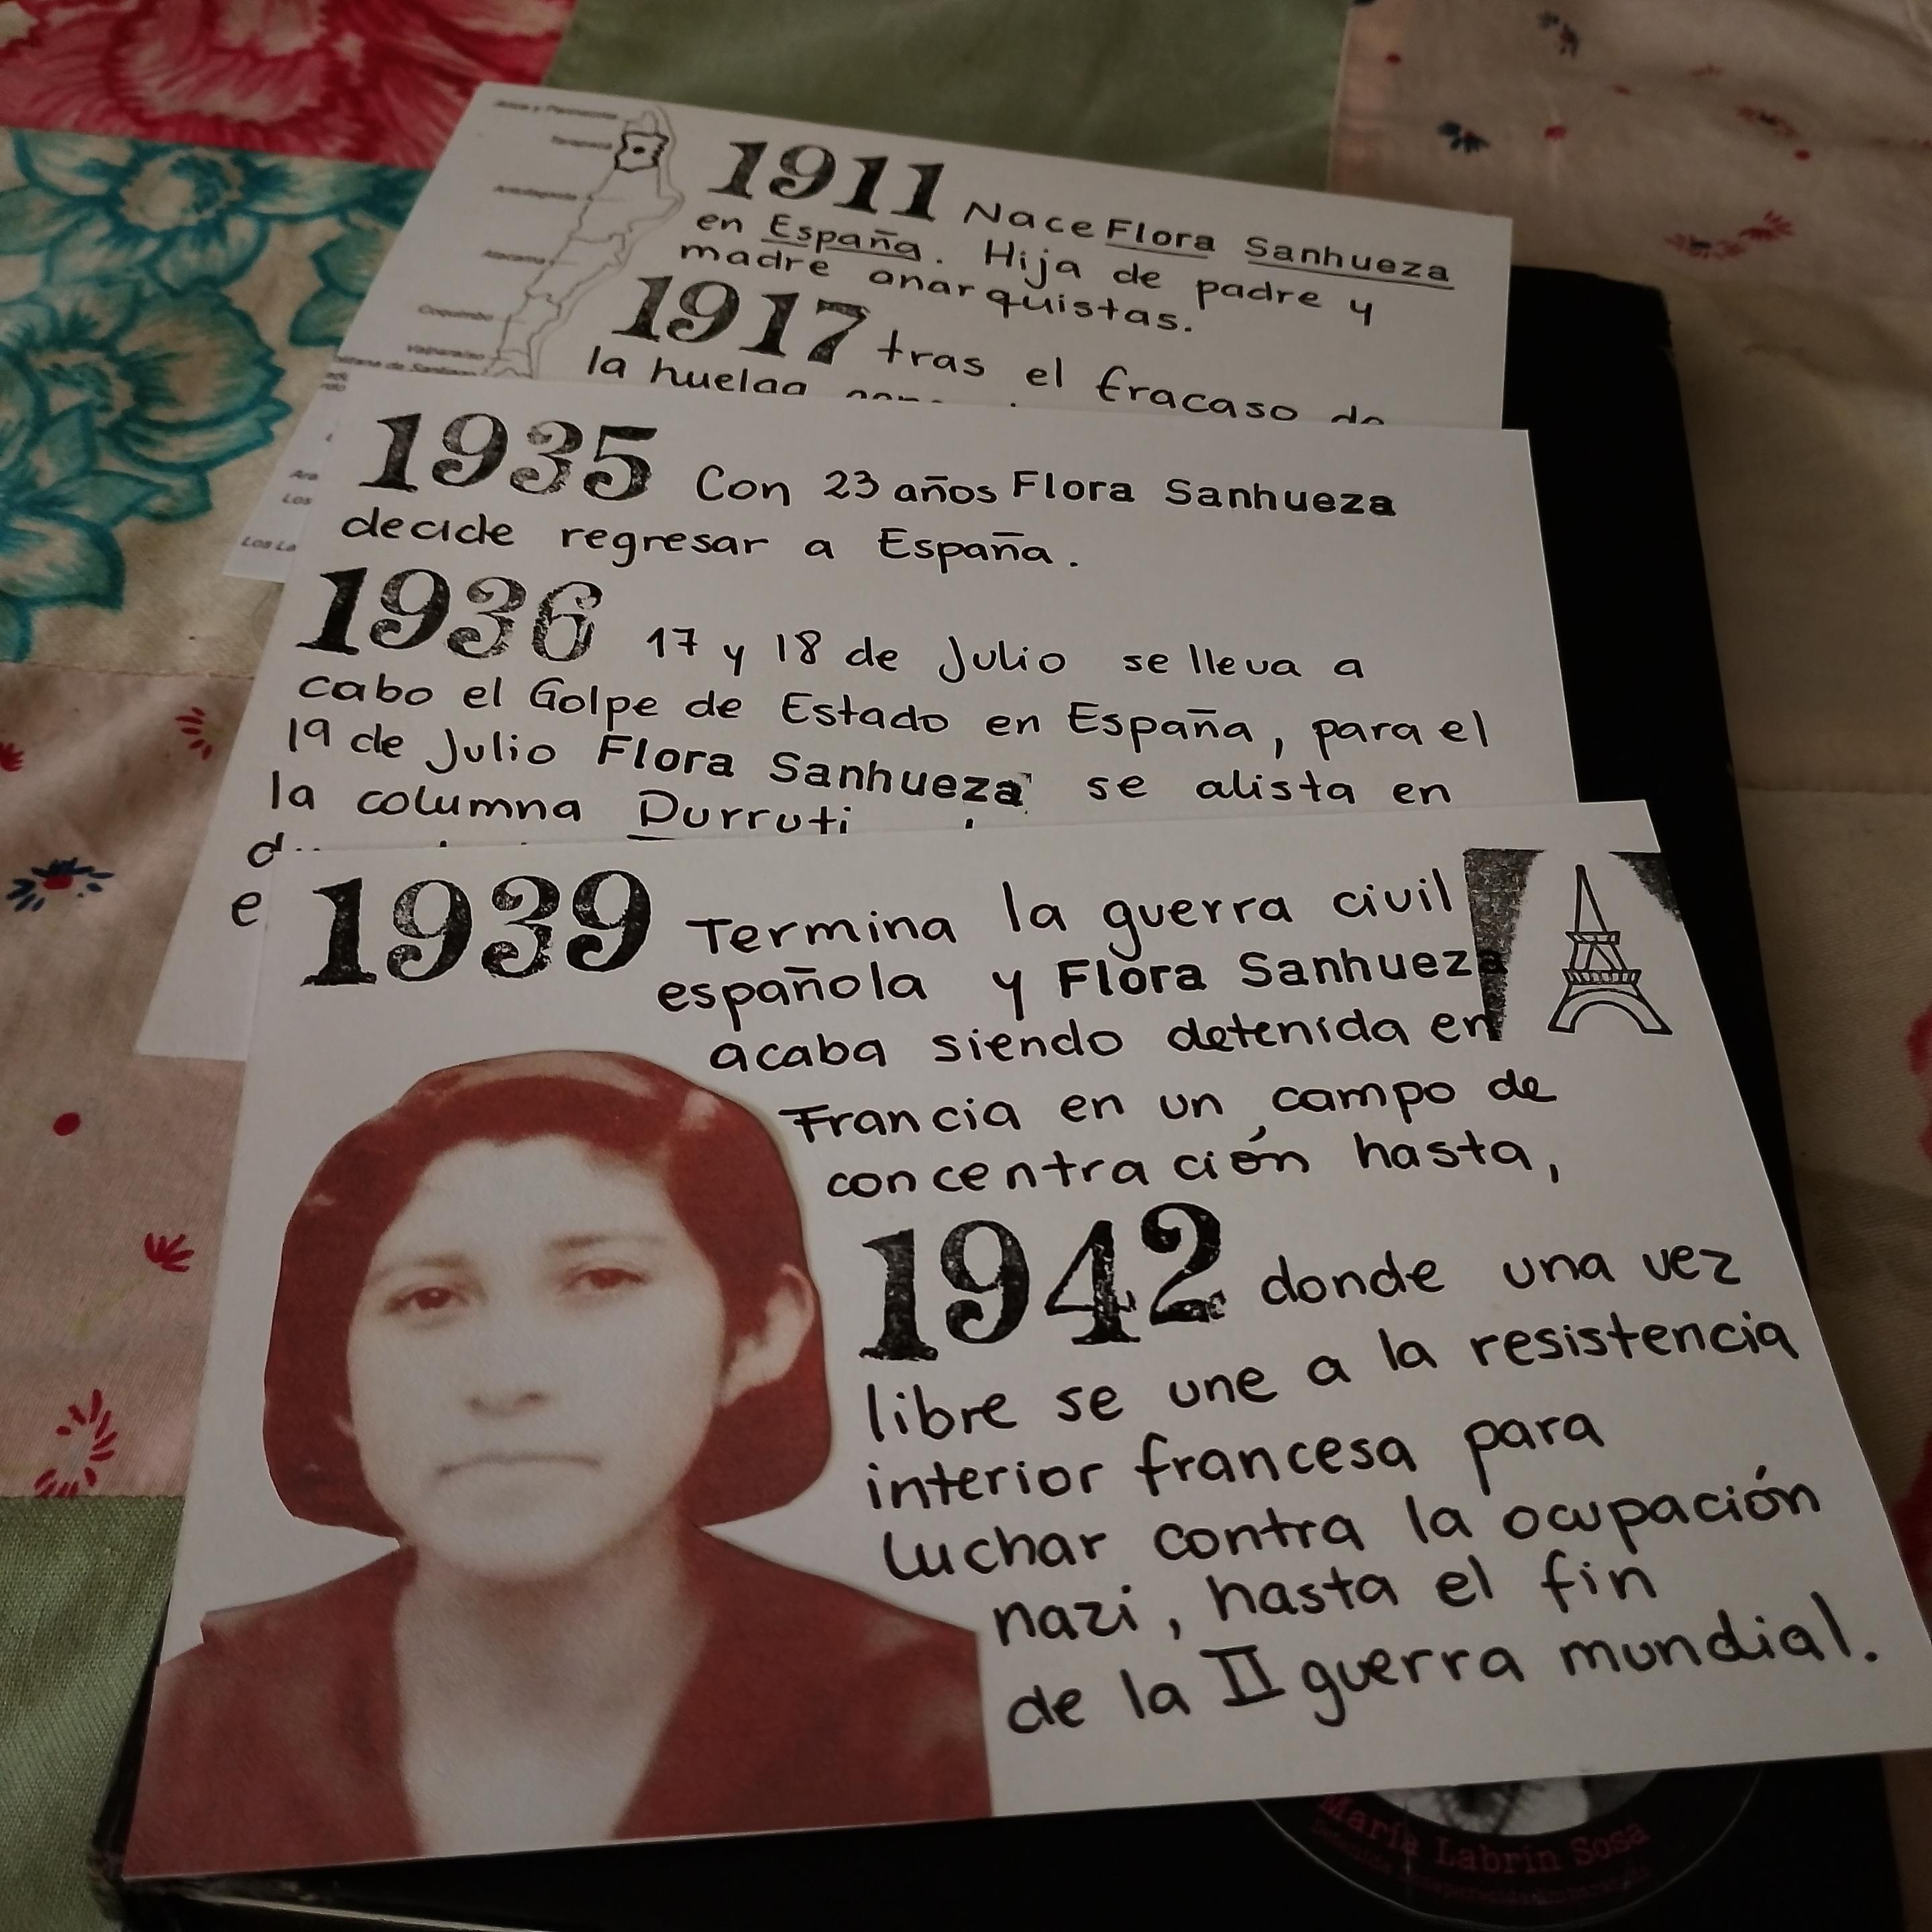 Tarapacá
Antofagasta
Atacama
Coquimbo
Valparaíso
1911 Nace Flora Sanhueza
en España. Hija de padre y
madre anarquistas.
1917 tras el fracaso de
la huelga
Los
Los La
1935 Con 23 años Flora Sanhueza
decide regresar a España.
1936 17 y 18 de Julio se lleva a
cabo el Golpe de Estado en España, para el
19 de Julio Flora Sanhueza se alista en
la columna Durruti
d
e
1939 Termina la guerra civil
española y Flora Sanhueza
acaba siendo detenida en
Francia en un campo de
concentración hasta,
1942 donde una vez
libre se une a la resistencia
interior francesa para
luchar contra la ocupación
nazi, hasta el fin
de la II guerra mundial.
María Labrin Sosa